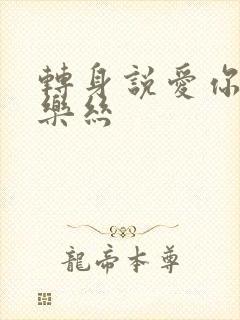 轉身說愛你
樂絲
龍帝本尊